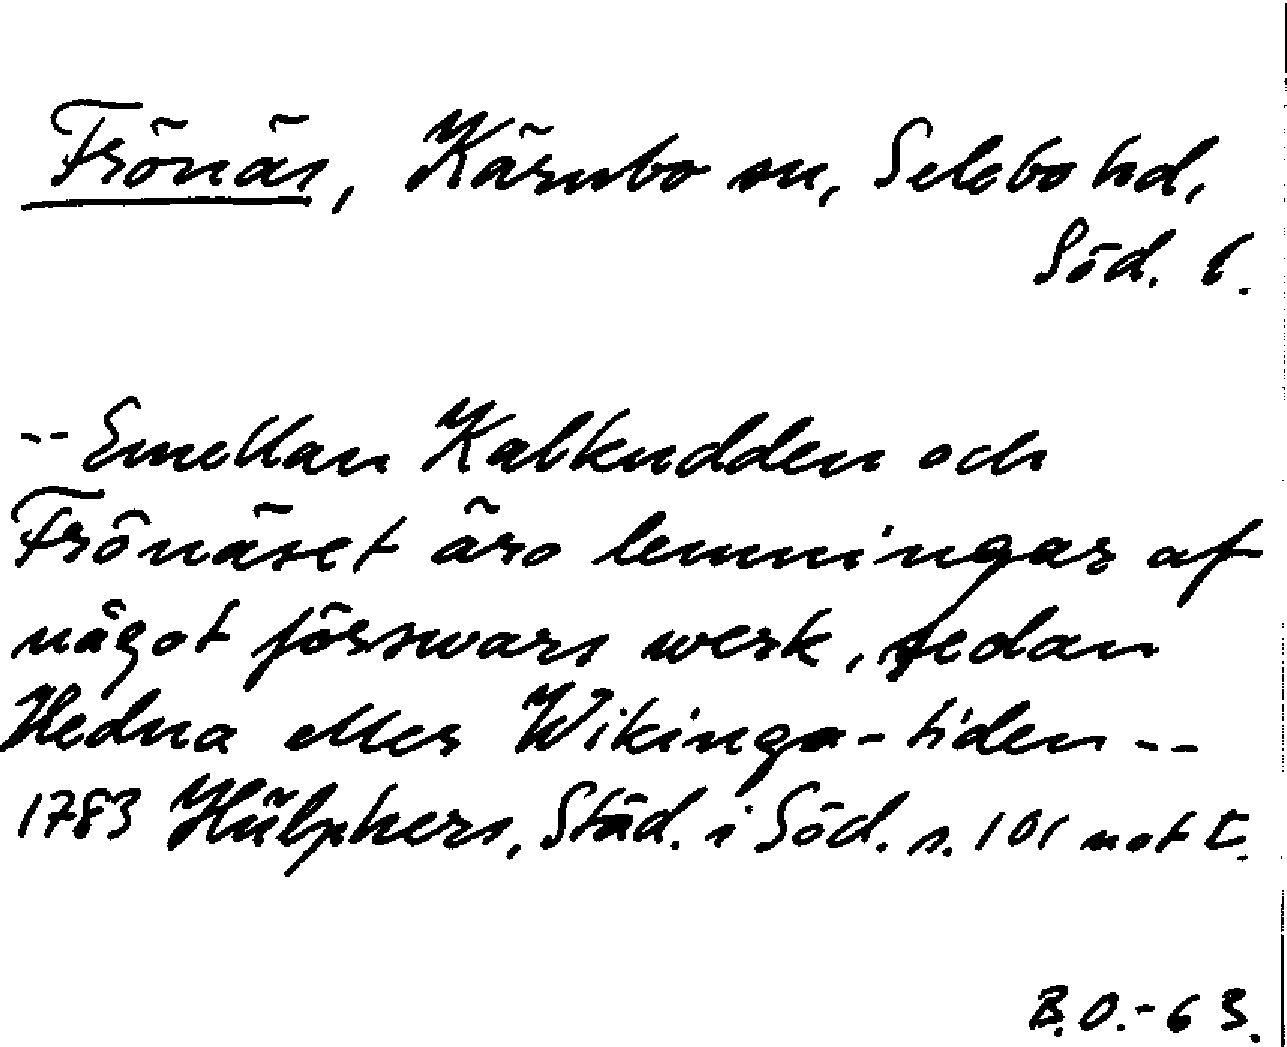 Frönäs, Kärnbo sn, Selebo hd,
Söd. l.
-- Emellan Kalkudden och
Frönäset äro lemningar af
något förswars werk, sedan
Hedna eller Wikinga-tiden --
1783 Hülphers, Städ. i Söd. s. 101 not t.
B.O.-63.